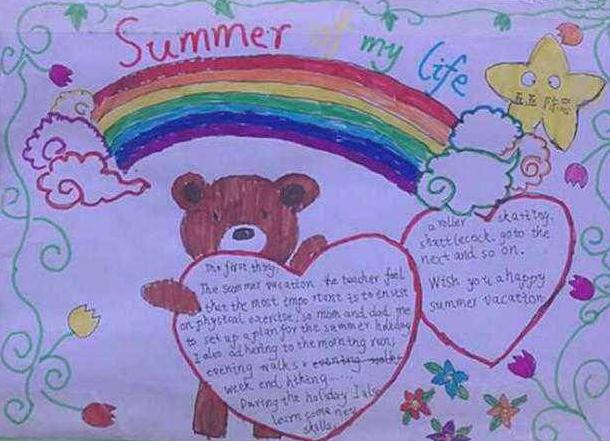 Summer of my life
五五 陈思
The first thing:
The summer vacation the teacher feel
that the most impo rtant is to en use
on physical exercise, so mom and dad me
to set up a plan for the summer holiday
I also adhering to the morning run,
evening walks, evening walks
week end, hiking......
During the holiday I als
learn some new
skills
a roller skating.
shattlecock. go to the
next and so on.
Wish you a happy
summer vacation